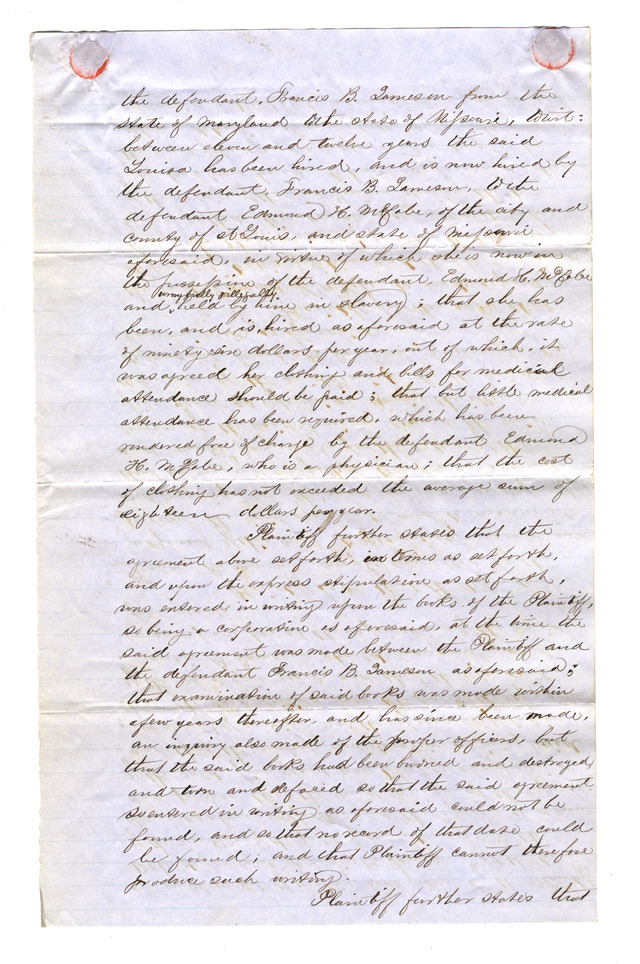 the defendant, Francis B. Jameson from the
State of Maryland to the state of Missouri, towit:
between eleven and twelve years the said
Louisa has been hired, and is now hired by
the defendant, Francis B. Jameson, to the
defendant Edmond H. McCabe, of the city and
county of St Louis, and state of Missouri
aforesaid, in virtue of which she is now in
the possession of the defendant, Edmond H. McCabe
wrongfully & illegally
and held by him in slavery; that she has
been, and is, hired as aforesaid at the rate
of ninety six dollars per year, out of which, it
was agreed her clothing and bills for medical
attendance should be paid; that but little medical
attendance has been required, which has been
rendered free of charge by the defendant Edmond
H. McCabe, who is a physician; that the cost
of clothing has not exceeded the average sum of
eighteen dollars per year.
Plaintiff further states that the
agreement above set forth, in terms as set forth,
and upon the express stipulation as set forth,
was entered in writing upon the books of the Plaintiff,
so being a corporation as aforesaid, at the time the
said agreement was made between the Plaintiff and
the defendant Francis B. Jameson as aforesaid;
that examination of said books was made within
a few years thereafter, and has since been made,
an inquiry also made of the proper officers, but
that the said books had been burned and destroyed
and torn and defaced so that the said agreement
so entered in writing as aforesaid could not be
found, and so that no record of that date could
be found; and that Plaintiff cannot therefore
produce such writing.
Plaintiff further states that